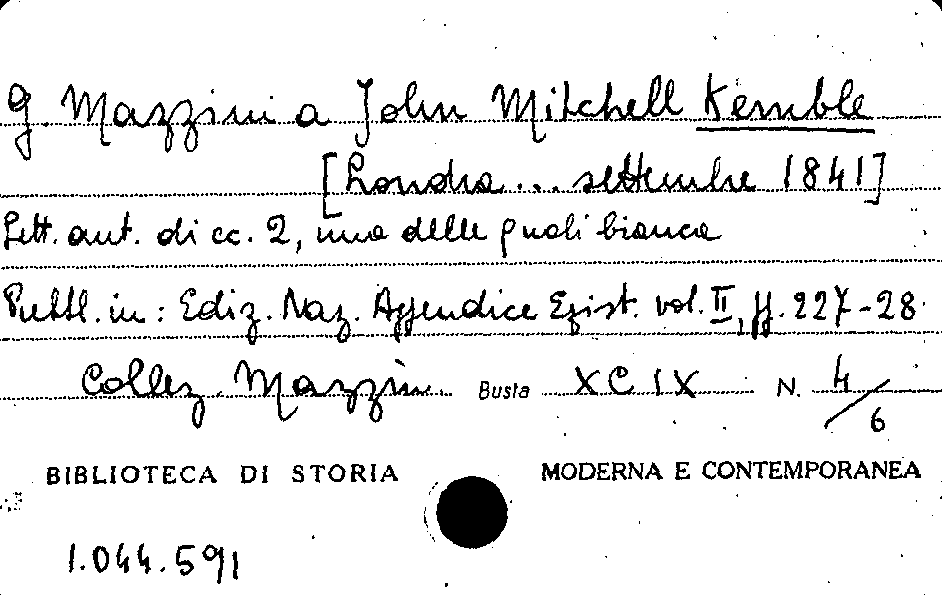 G. Mazzini a John Mitchell Kemble
[Londra ... settembre 1841]
Lett. aut. di cc. 2, una delle quali bianca
Pubbl. in: Ediz. Naz. Appendice Epist. vol. II, pp. 227-28
Collez. Mazzini Busta XCIX N. 4/6
BIBLIOTECA DI STORIA MODERNA E CONTEMPORANEA
1.044.591